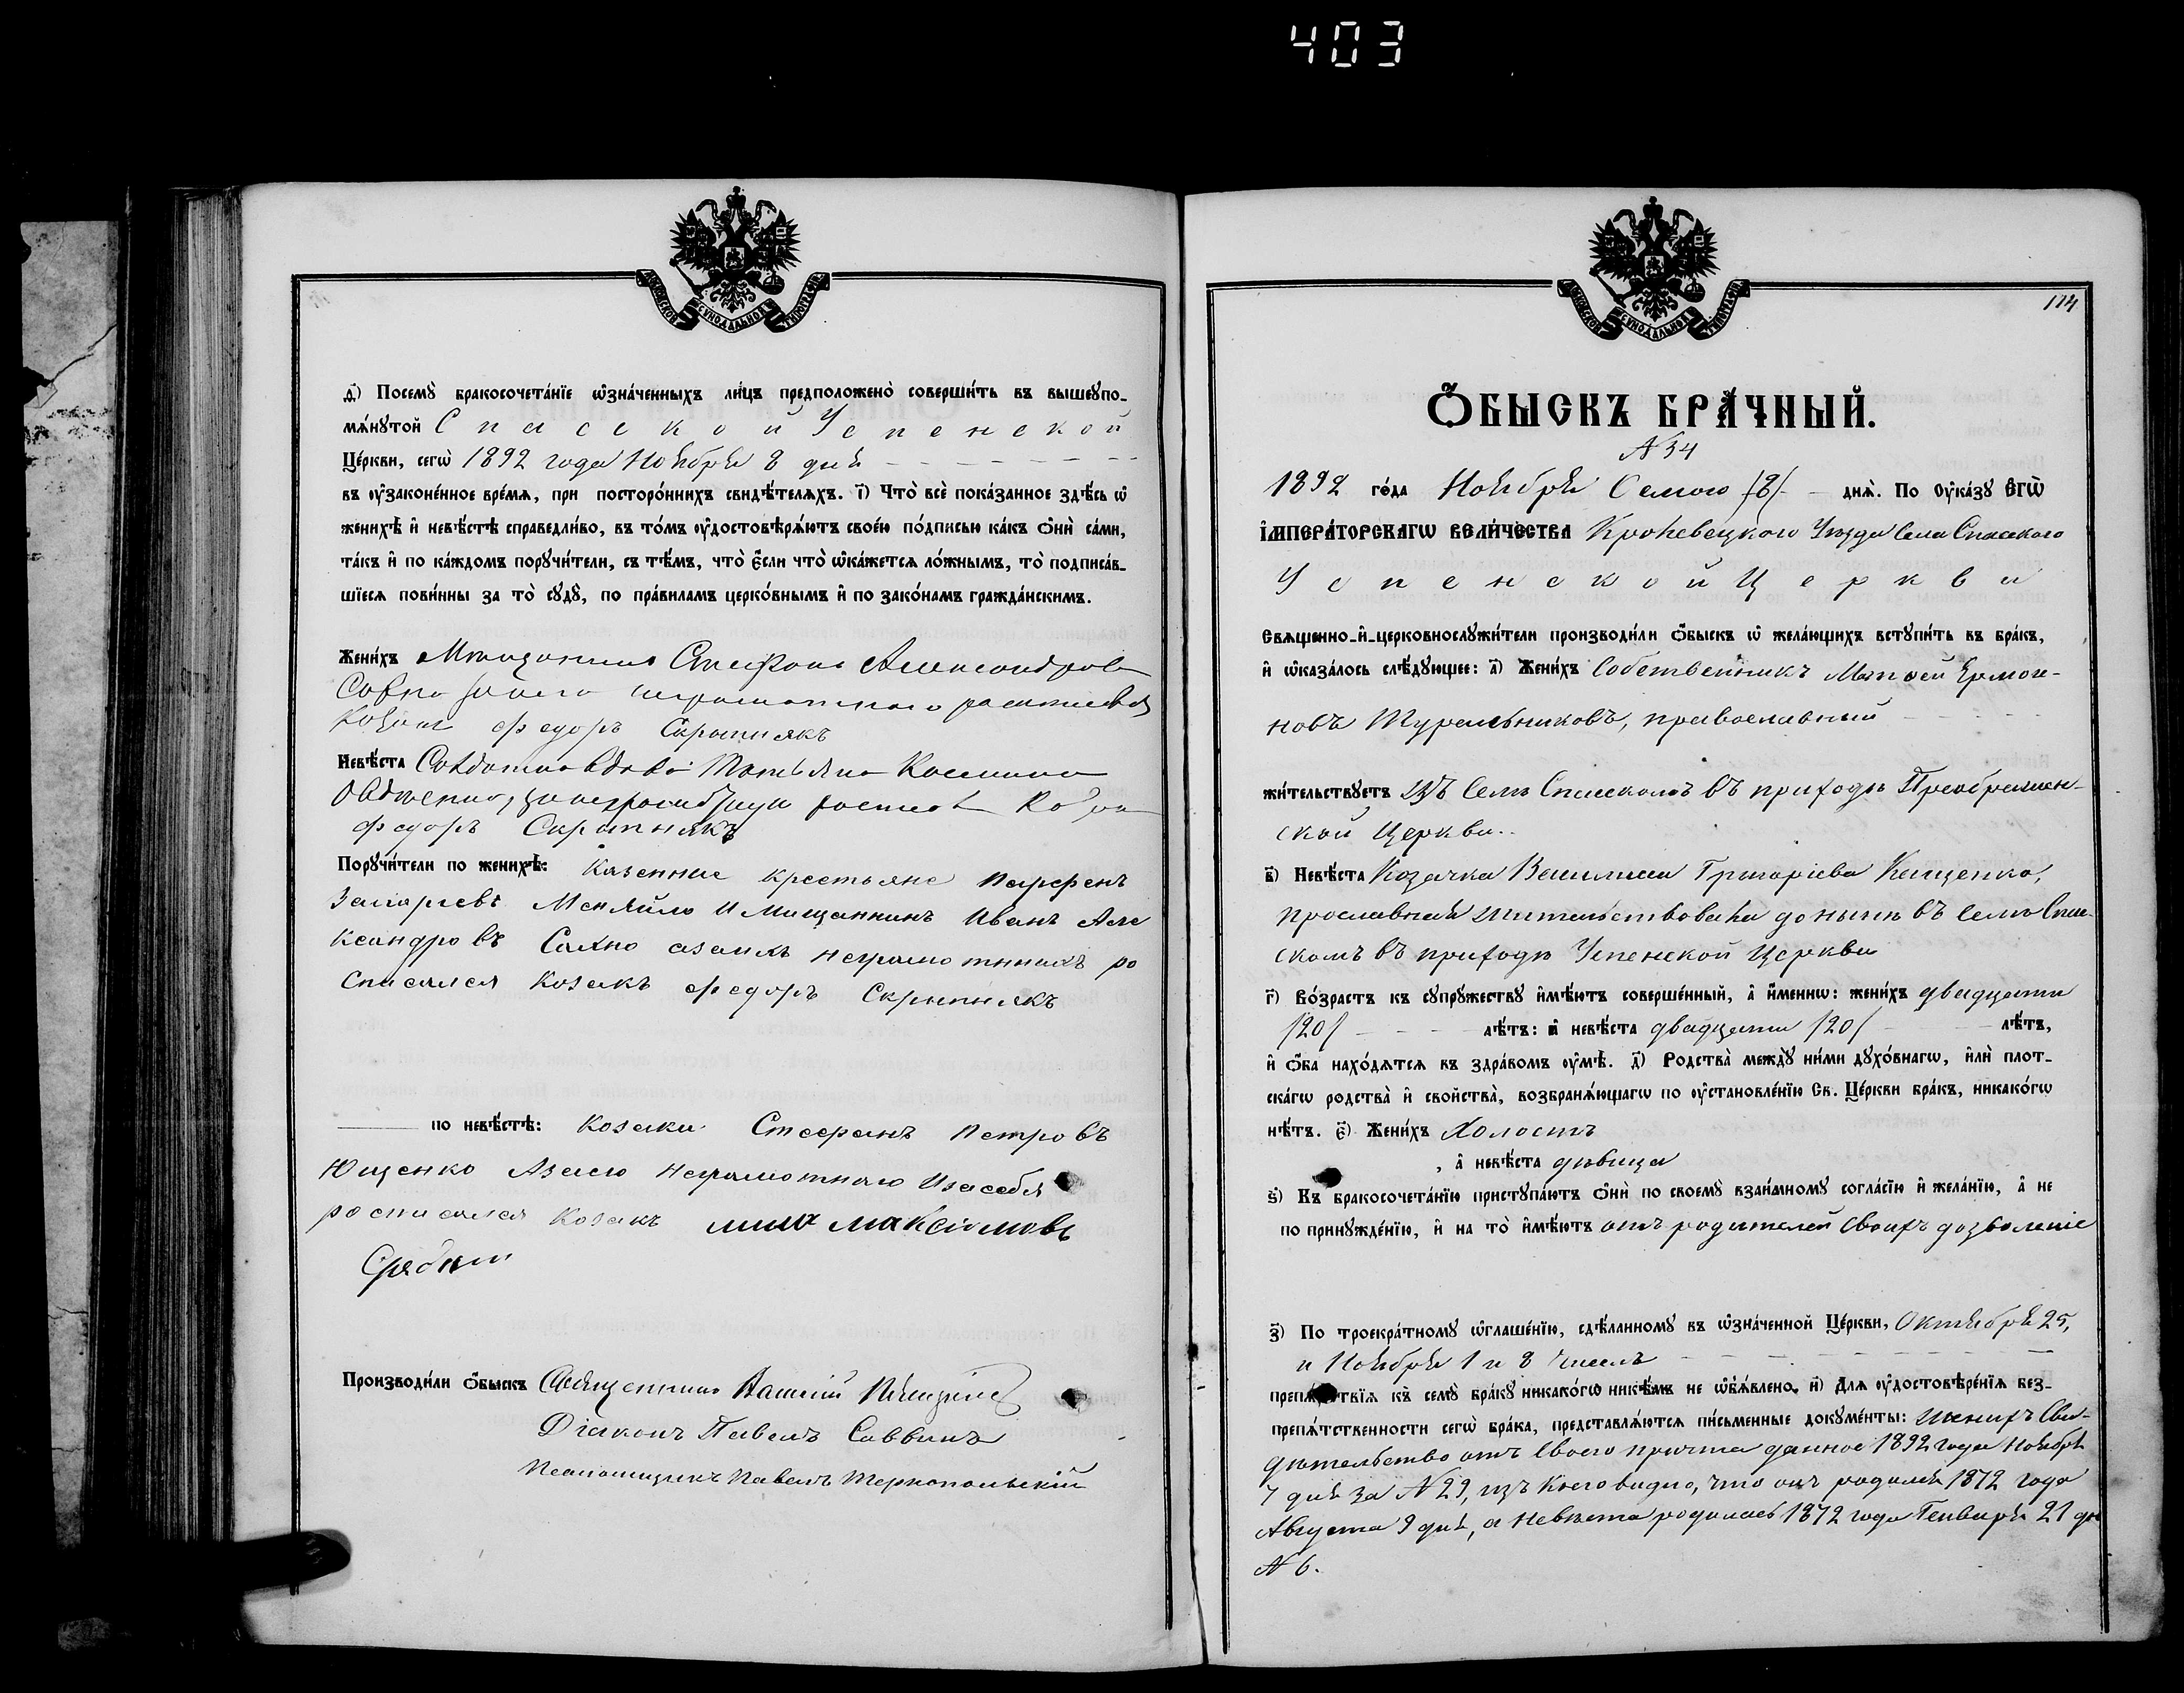 403
МОСКОВСКОЙ СѴНОДАЛЬНОЙ ТИПОГРАФІИ
д҃) Посемꙋ̀ бракосочета́нїе ѡ҆зна́ченныхъ ли́цъ предположено̀ соверши́ть въ вышеꙋпо-
мѧ́нꙋтой Спасской Успенской
Це́ркви, сегѡ̀ 1892 года Ноября 8 дня
въ ᲂу҆законе́нное вре́мѧ, при посторо́ннихъ свидѣ́телѧхъ. і҃) Что̀ всѐ пока́занное здѣ́сь ѡ҆
женихѣ̀ и҆ невѣ́стѣ справедли́во, въ то́мъ ᲂу҆достовѣрѧ́ютъ свое́ю по́дписью ка́къ ѻ҆нѝ са́ми,
та́къ и҆ по ка́ждомъ порꙋчи́тели, съ тѣ́мъ, что̀ є҆́сли что̀ ѡ҆ка́жетсѧ ло́жнымъ, то̀ подписа́в-
шїесѧ пови́нны за то̀ сꙋдꙋ̀, по пра́виламъ церко́внымъ и҆ по зако́намъ гражда́нскимъ.
Жени́хъ Мещанинъ Стефанъ Александровъ
Сахно неграмотнаго росписался
Козакъ федоръ Скрыпнякъ
Невѣ́ста Солдатка вдова Татьяна Косьмина
федоръ Скрыпнякъ
Порꙋчи́тели по женихѣ̀: Казенные крестьяне Парфенъ
Захарьевъ Меняйло И Мещанинъ Иванъ Але
ксандровъ Сахно азаихъ неграмотныхъ ро
списался Козакъ федоръ Скрыпнякъ
по невѣ́стѣ: Козаки Стефанъ Петровъ
Ющенко Азаего неграмотнаго Изасебя
росписался Козакъ максимовъ
Производи́ли ѻ҆́быскъ Священникъ Василій
Діаконъ Павелъ Саввинъ
Псаломщикъ Павелъ Тернопольскій
МОСКОВСКОЙ СѴНОДАЛЬНОЙ ТИПОГРАФІИ
114
Ѻ҆́БЫСКЪ БРА́ЧНЫЙ.
N 34
1892 го́да Ноября Седмого /8/ днѧ̀. По ᲂу҆ка́зꙋ Є҆ГѠ̀
І҆МПЕРА́ТОРСКАГѠ ВЕЛИ́ЧЕСТВА Кролевецкого Уезда Села Спасского
Успенской Церкви
Свѧще́нно-и҆-церковнослꙋжи́тели производи́ли ѻ҆́быскъ ѡ҆ жела́ющихъ встꙋпи́ть въ бра́къ,
и҆ ѡ҆каза́лось слѣ́дꙋющее: а҃) Жени́хъ Собственникъ Матѳей Ермоге-
новъ Турельниковъ, православный
жи́тельствꙋетъ Въ Селѣ Спасскомъ въ приходѣ Преображен-
ской Церкви.
в҃) Невѣ́ста Козачка Василиса Григоріева Кищенко,
прославная жительствовала до нынѣ въ Селѣ Спас-
скомъ въ приходѣ Успенской Церкви
г҃) Во́зрастъ къ сꙋпрꙋ́жествꙋ и҆мѣ́ютъ соверше́нный, а҆ и҆́меннѡ: жени́хъ двадцати
/20/ лѣ́тъ: а҆ невѣ́ста двадцати /20/ лѣ́тъ,
и҆ ѻ҆́ба нахо́дѧтсѧ въ здра́вомъ ᲂу҆мѣ̀. д҃) Родства̀ междꙋ̀ ни́ми дꙋхо́внагѡ, и҆лѝ плот-
ска́гѡ родства̀ и҆ сво́йства̀, возбранѧ́ющагѡ по ᲂу҆становле́нїю Св. Це́ркви бра́къ, никако́гѡ
нѣ́тъ. є҃) Жени́хъ Холостъ
, а҆ невѣ́ста дѣвица
ѕ҃) Къ бракосочета́нїю пристꙋпа́ютъ ѻ҆нѝ по своемꙋ̀ взаи́мномꙋ согла́сїю и҆ жела́нїю, а҆ не
по принꙋжде́нїю, и҆ на то̀ и҆мѣ́ютъ отъ родителей своихъ дозволеніе
з҃) По троекра́тномꙋ ѡ҆глаше́нїю, сдѣ́ланномꙋ въ ѡ҆зна́ченной Це́ркви, Октября 25,
и Ноября 1 и 8 чиселъ
препѧ́тствїѧ къ семꙋ̀ бра́кꙋ никако́гѡ никѣ́мъ не ѡ҆бъѧ́влено. и҃) Длѧ ᲂу҆достовѣре́нїѧ без-
препѧ́тственности сегѡ̀ бра́ка, представлѧ́ютсѧ пи́сьменные докꙋме́нты: женихъ Сви-
дѣтельство отъ своего причта данное 1892 года Ноября
7 дня за N 29, изъ коего видно, что онъ родился 1872 года
Августа 9 дня, а Невѣста родилась 1872 года Генваря 21 дн
N 6.